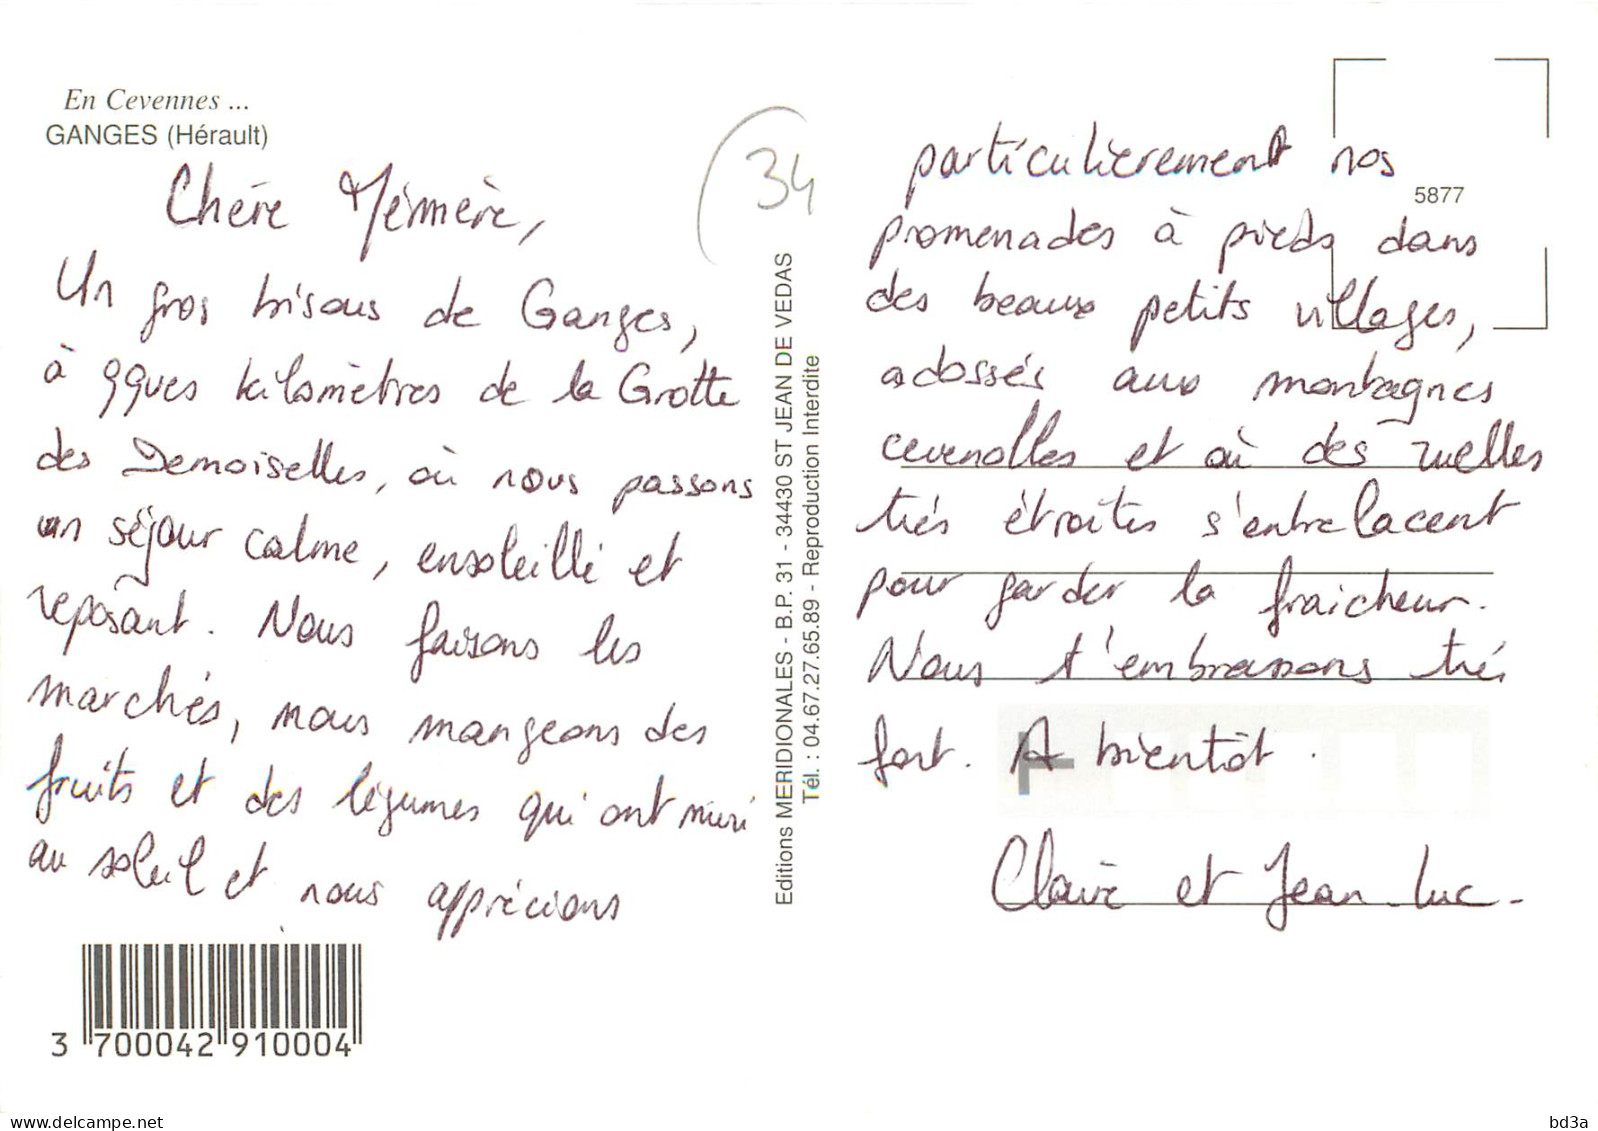 En Cevennes ...
GANGES (Hérault)
34
Chère Mémère,
Un gros bisous de Ganges,
à qques kilomètres de la Grotte
des Demoiselles, où nous passons
un séjour calme, ensoleillé et
reposant. Nous faisons les
marchés, nous mangeons des
fruits et des légumes qui ont muri
au soleil et nous apprécions
3 700042 910004
Editions MERIDIONALES - B.P. 31 - 34430 ST JEAN DE VEDAS
Tél. : 04.67.27.65.89 - Reproduction Interdite
5877
particulièrement nos
promenades à pieds dans
des beaux petits villages,
adossés aux montagnes
cevenolles et où des ruelles
très étroites s'entrelacent
pour garder la fraicheur.
Nous t'embrassons très
fort. A bientôt.
Claire et Jean-Luc.
delcampe.net
bd3a